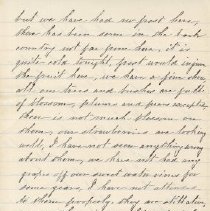 but we have had no frost here,
there has been some in the back
country not far from here, it is
quite cold tonight, frost would injure
the fruit here, we have a fine show
all our trees and bushes are full
of blossoms, plums and pears excepted
there is not much blossom on
them, our strawberries are looking
well, I have not seen anything
about them, we have not had any
grapes off our sweet water vines for
some years. I have not attended
to them properly they are